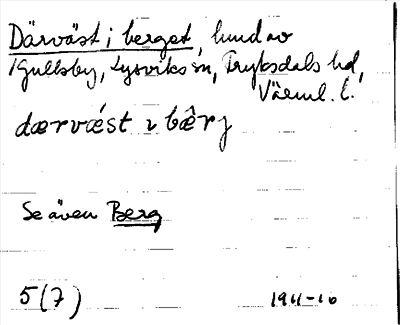 Därväst i berget, hund av
Gullsby, Lysviks sn, Fryksdals hd,
Värml. l.
dærvǽst ı bêrj
Se även Berg
5(7)